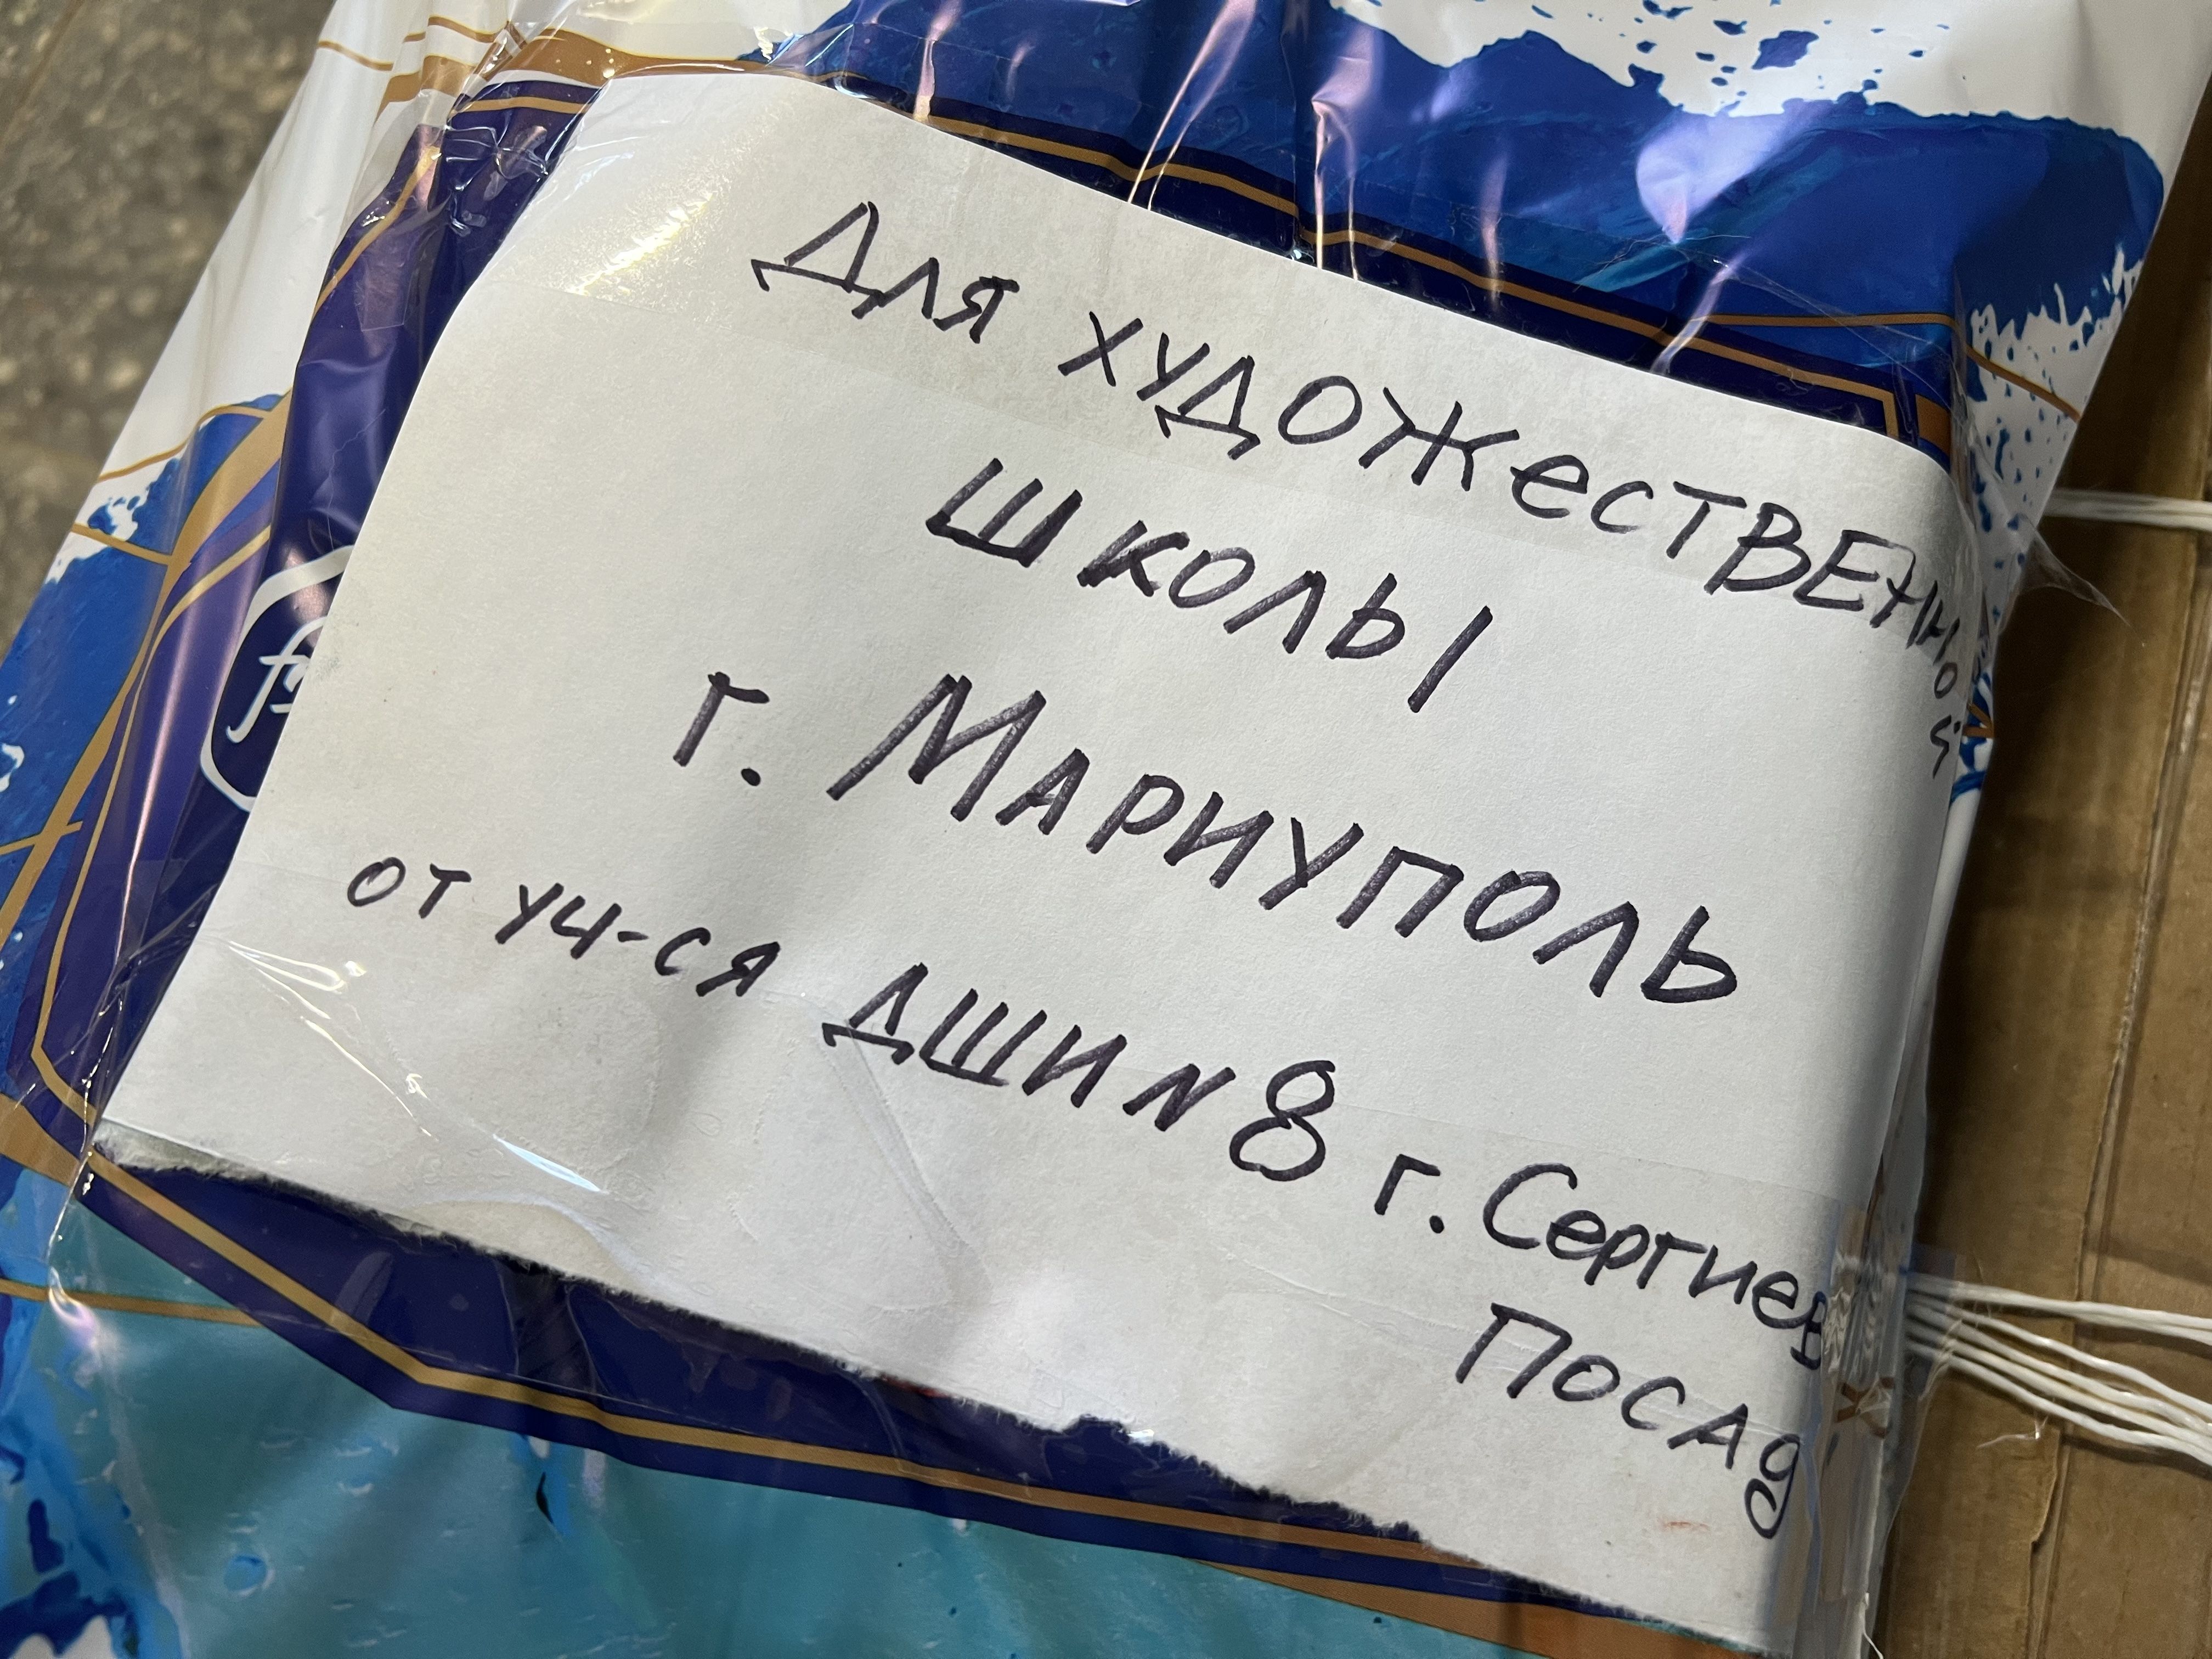 Для художественной
школы
г. Мариуполь
от уч-ся ДШИ N8 г. Сергиев
Посад